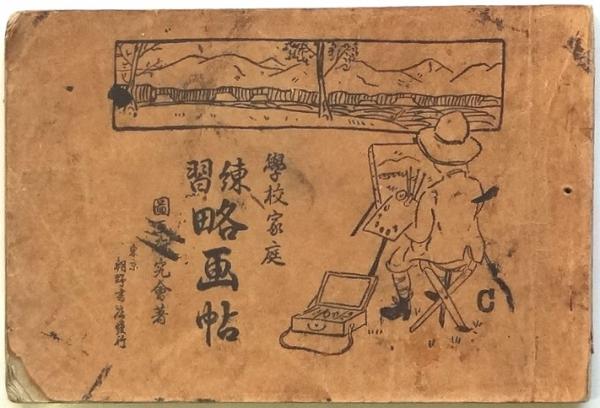 學校家庭
練習
略画帖
圖画研究會著
東京
朝野書店發行
C